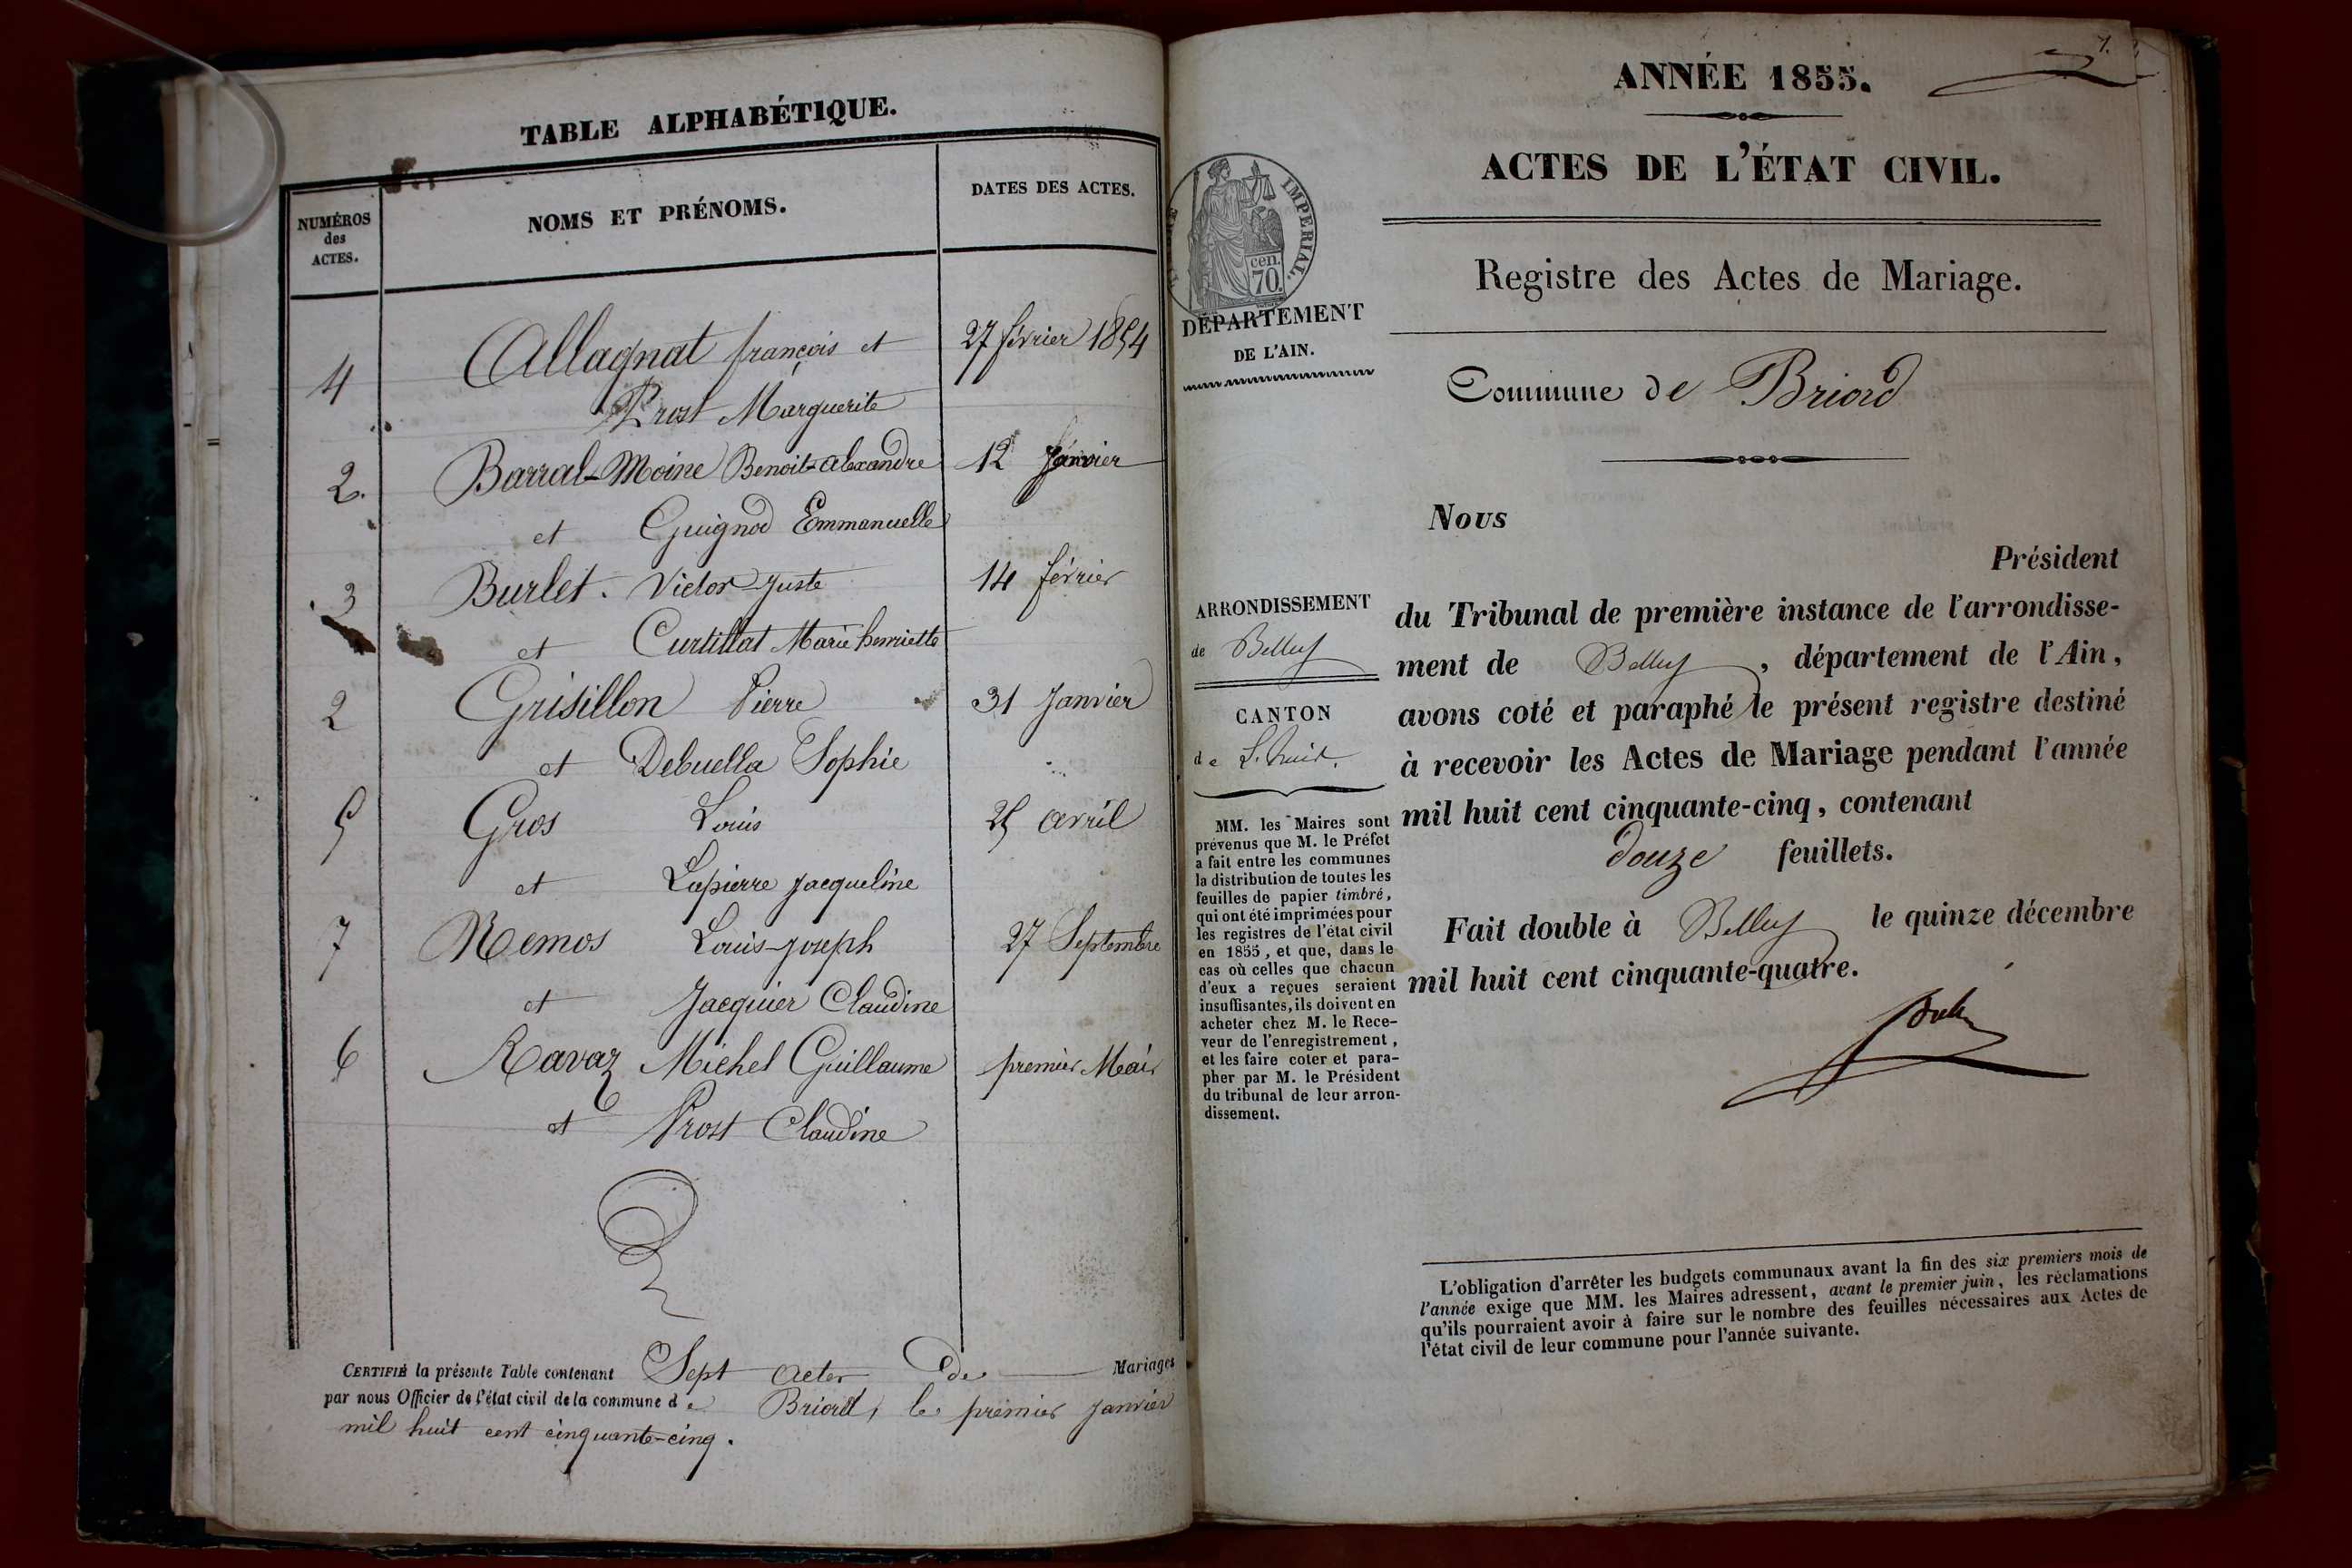 TABLE ALPHABÉTIQUE.
NUMÉROS
des
ACTES.
NOMS ET PRÉNOMS.
DATES DES ACTES.
4 Allagnat françois et 27 février 1854
Prost Marguerite
2. Barral-Moine Benoit-alexandre 12 Janvier
et Guignod Emmanuelle
3 Burlet. Victor-Juste 14 février
et Curtillat Marie henriette
2 Grisillon Pierre 31 Janvier
et Debuella Sophie
5 Gros Louis 25 avril
et Lapierre Jacqueline
7 Remos Louis-Joseph 27 Septembre
et Jacquier Claudine
6 Ravaz Michel Guillaume premier Mai
et Prost Claudine
CERTIFIÉ la présente Table contenant Sept actes de Mariages
par nous Officier de l'état civil de la commune de Briord, le premier Janvier
mil huit cent cinquante-cinq.
1.
ANNÉE 1855.
ACTES DE L'ÉTAT CIVIL.
Registre des Actes de Mariage.
IMPERIAL.
cen.
70.
DÉPARTEMENT
DE L'AIN.
Commune de Briord
Nous
Président
du Tribunal de première instance de l'arrondisse-
ment de Belley, département de l'Ain,
avons coté et paraphé le présent registre destiné
à recevoir les Actes de Mariage pendant l'année
mil huit cent cinquante-cinq, contenant
douze feuillets.
Fait double à Belley le quinze décembre
mil huit cent cinquante-quatre.
ARRONDISSEMENT
de Belley
CANTON
de L.huis.
MM. les Maires sont
prévenus que M. le Préfet
a fait entre les communes
la distribution de toutes les
feuilles de papier timbré,
qui ont été imprimées pour
les registres de l'état civil
en 1855, et que, dans le
cas où celles que chacun
d'eux a reçues seraient
insuffisantes, ils doivent en
acheter chez M. le Rece-
veur de l'enregistrement,
et les faire coter et para-
pher par M. le Président
du tribunal de leur arron-
dissement.
L'obligation d'arrêter les budgets communaux avant la fin des six premiers mois de
l'année exige que MM. les Maires adressent, avant le premier juin, les réclamations
qu'ils pourraient avoir à faire sur le nombre des feuilles nécessaires aux Actes de
l'état civil de leur commune pour l'année suivante.